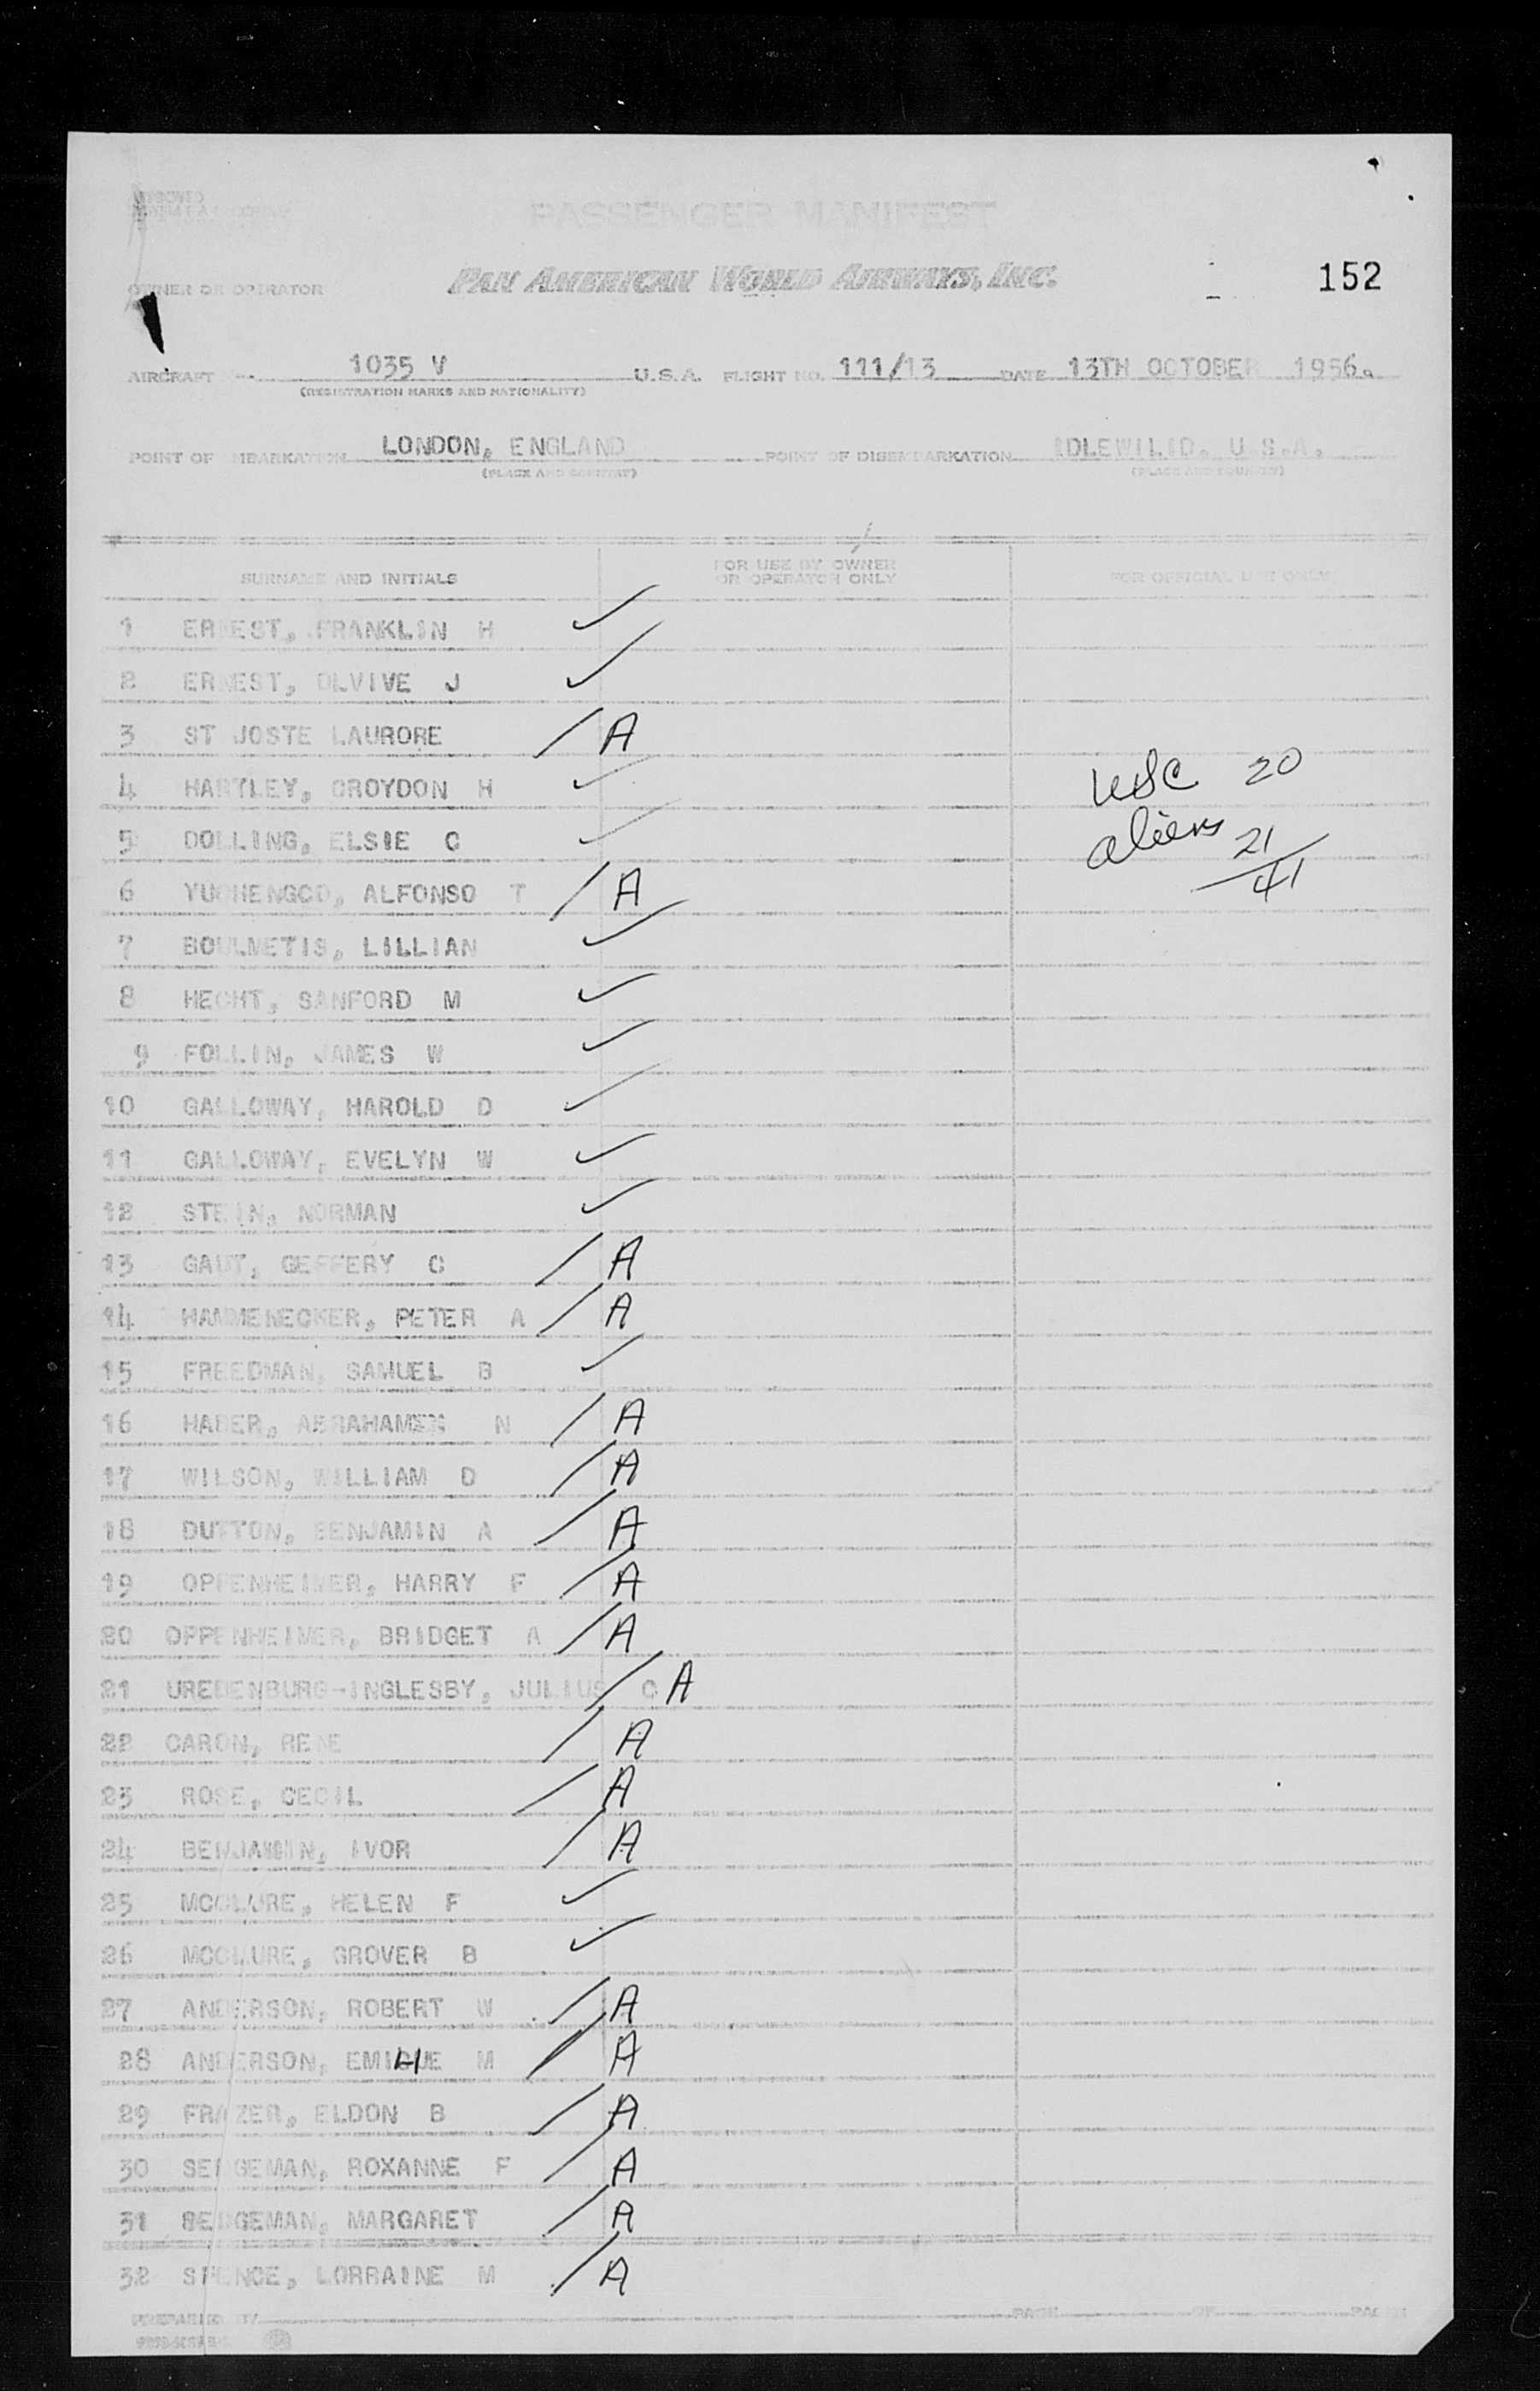 PASSENGER MANIFEST
OWNER OR OPERATOR PAN AMERICAN WORLD AIRWAYS, INC. 152
AIRCRAFT 1035 V U.S.A. FLIGHT NO. 111/13 DATE 13TH OCTOBER 1956.
(REGISTRATION MARKS AND NATIONALITY)
POINT OF EMBARKATION LONDON, ENGLAND POINT OF DISEMBARKATION IDLEWILID, U.S.A.
(PLACE AND COUNTRY) (PLACE AND COUNTRY)
SURNAME AND INITIALS FOR USE BY OWNER OR OPERATOR ONLY FOR OFFICIAL USE ONLY
1 ERNEST, FRANKLIN H ✓
2 ERNEST, OLVIVE J ✓
3 ST JOSTE LAURORE / A
4 HARTLEY, CROYDON H ✓ USC 20
5 DOLLING, ELSIE C ✓ aliens 21
6 YUCHENGCO, ALFONSO T / A 41
7 BOULMETIS, LILLIAN ✓
8 HECHT, SANFORD M ✓
9 FOLLIN, JAMES W ✓
10 GALLOWAY, HAROLD D ✓
11 GALLOWAY, EVELYN W ✓
12 STEIN, NORMAN ✓
13 GAUT, GEFFERY C / A
14 HAMMENECKER, PETER A / A
15 FREEDMAN, SAMUEL B ✓
16 HABER, ABRAHAM N / A
17 WILSON, WILLIAM D / A
18 DUTTON, BENJAMIN A / A
19 OPPENHEIMER, HARRY F / A
20 OPPENHEIMER, BRIDGET A / A
21 UREDENBURG-INGLESBY, JULIUS C / A
22 CARON, RENE / A
23 ROSE, CECIL / A
24 BENJAMIN, IVOR / A
25 MCCLURE, HELEN F ✓
26 MCCLURE, GROVER B ✓
27 ANDERSON, ROBERT W / A
28 ANDERSON, M / A
29 FRAZER, ELDON B / A
30 SEDGEMAN, ROXANNE F / A
31 SEDGEMAN, MARGARET / A
32 SPENCE, LORRAINE M / A
PREPARED BY PAGE OF PAGES